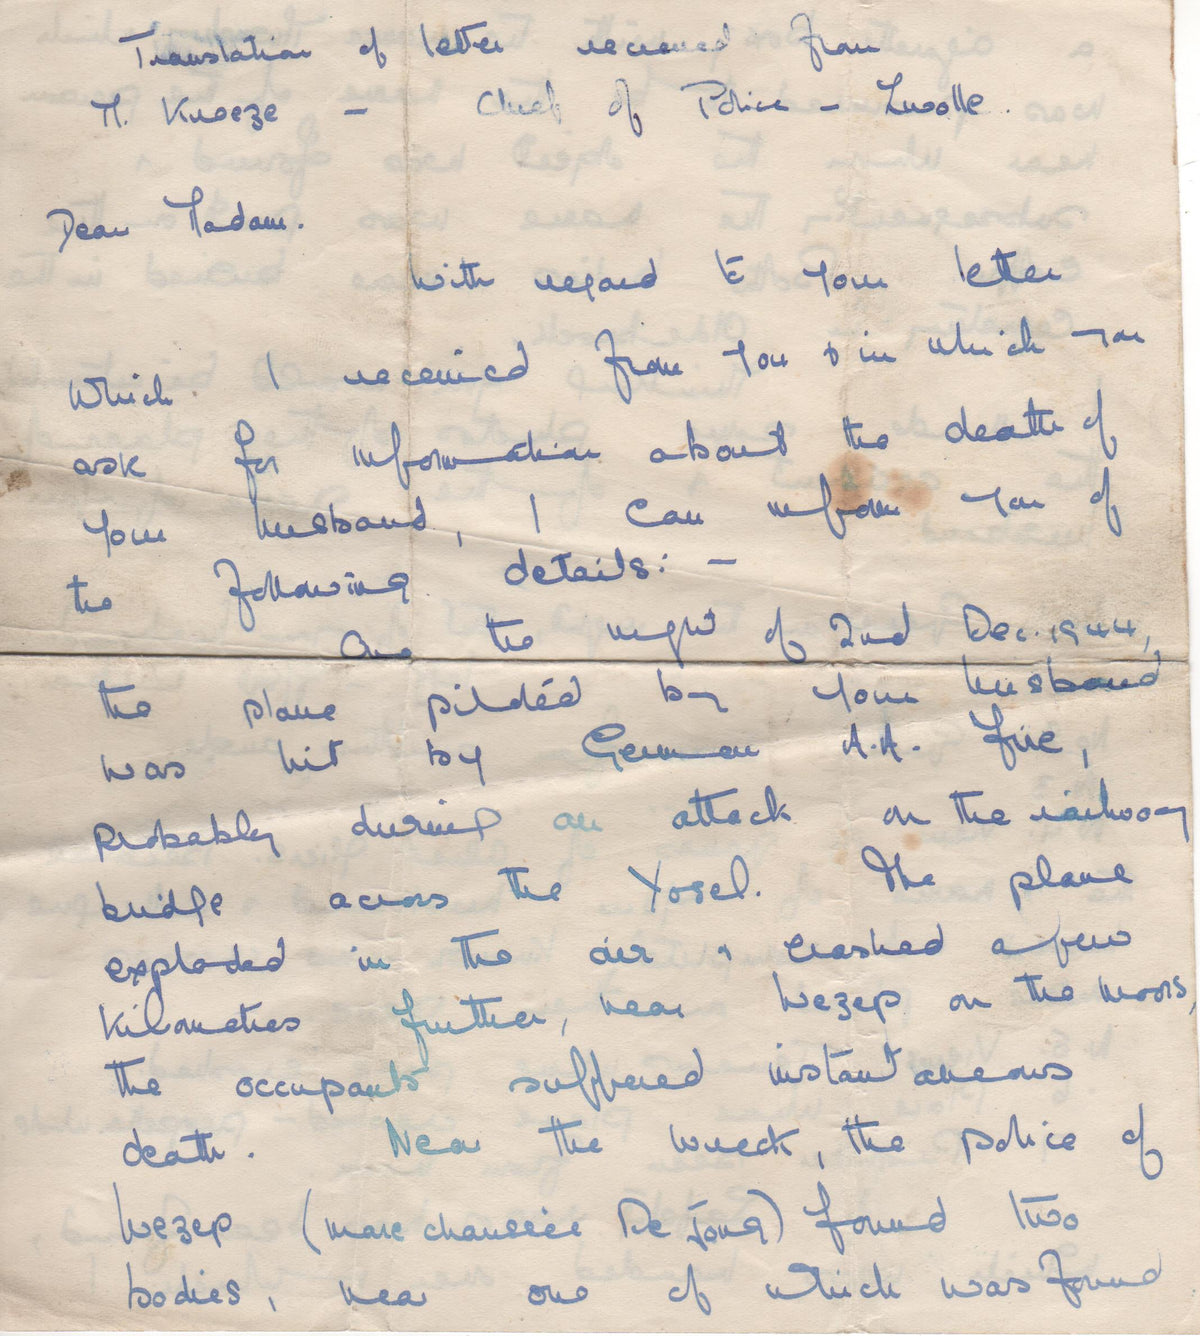 Translation of letter received from
M. Kroeze - Chief of Police - Zwolle.
Dear Madam.
With regard to your letter
which I received from you & in which you
ask for information about the death of
your husband, I can inform you of
the following details: -
On the night of 2nd Dec. 1944,
the plane piloted by your husband
was hit by German A.A. Fire,
probably during an attack on the railway
bridge across the Yssel. The plane
exploded in the air & crashed a few
kilometres further, near Wezep on the moors,
the occupants suffered instantaneous
death. Near the wreck, the police of
Wezep (marechaussée De Jong) found two
bodies, near one of which was found